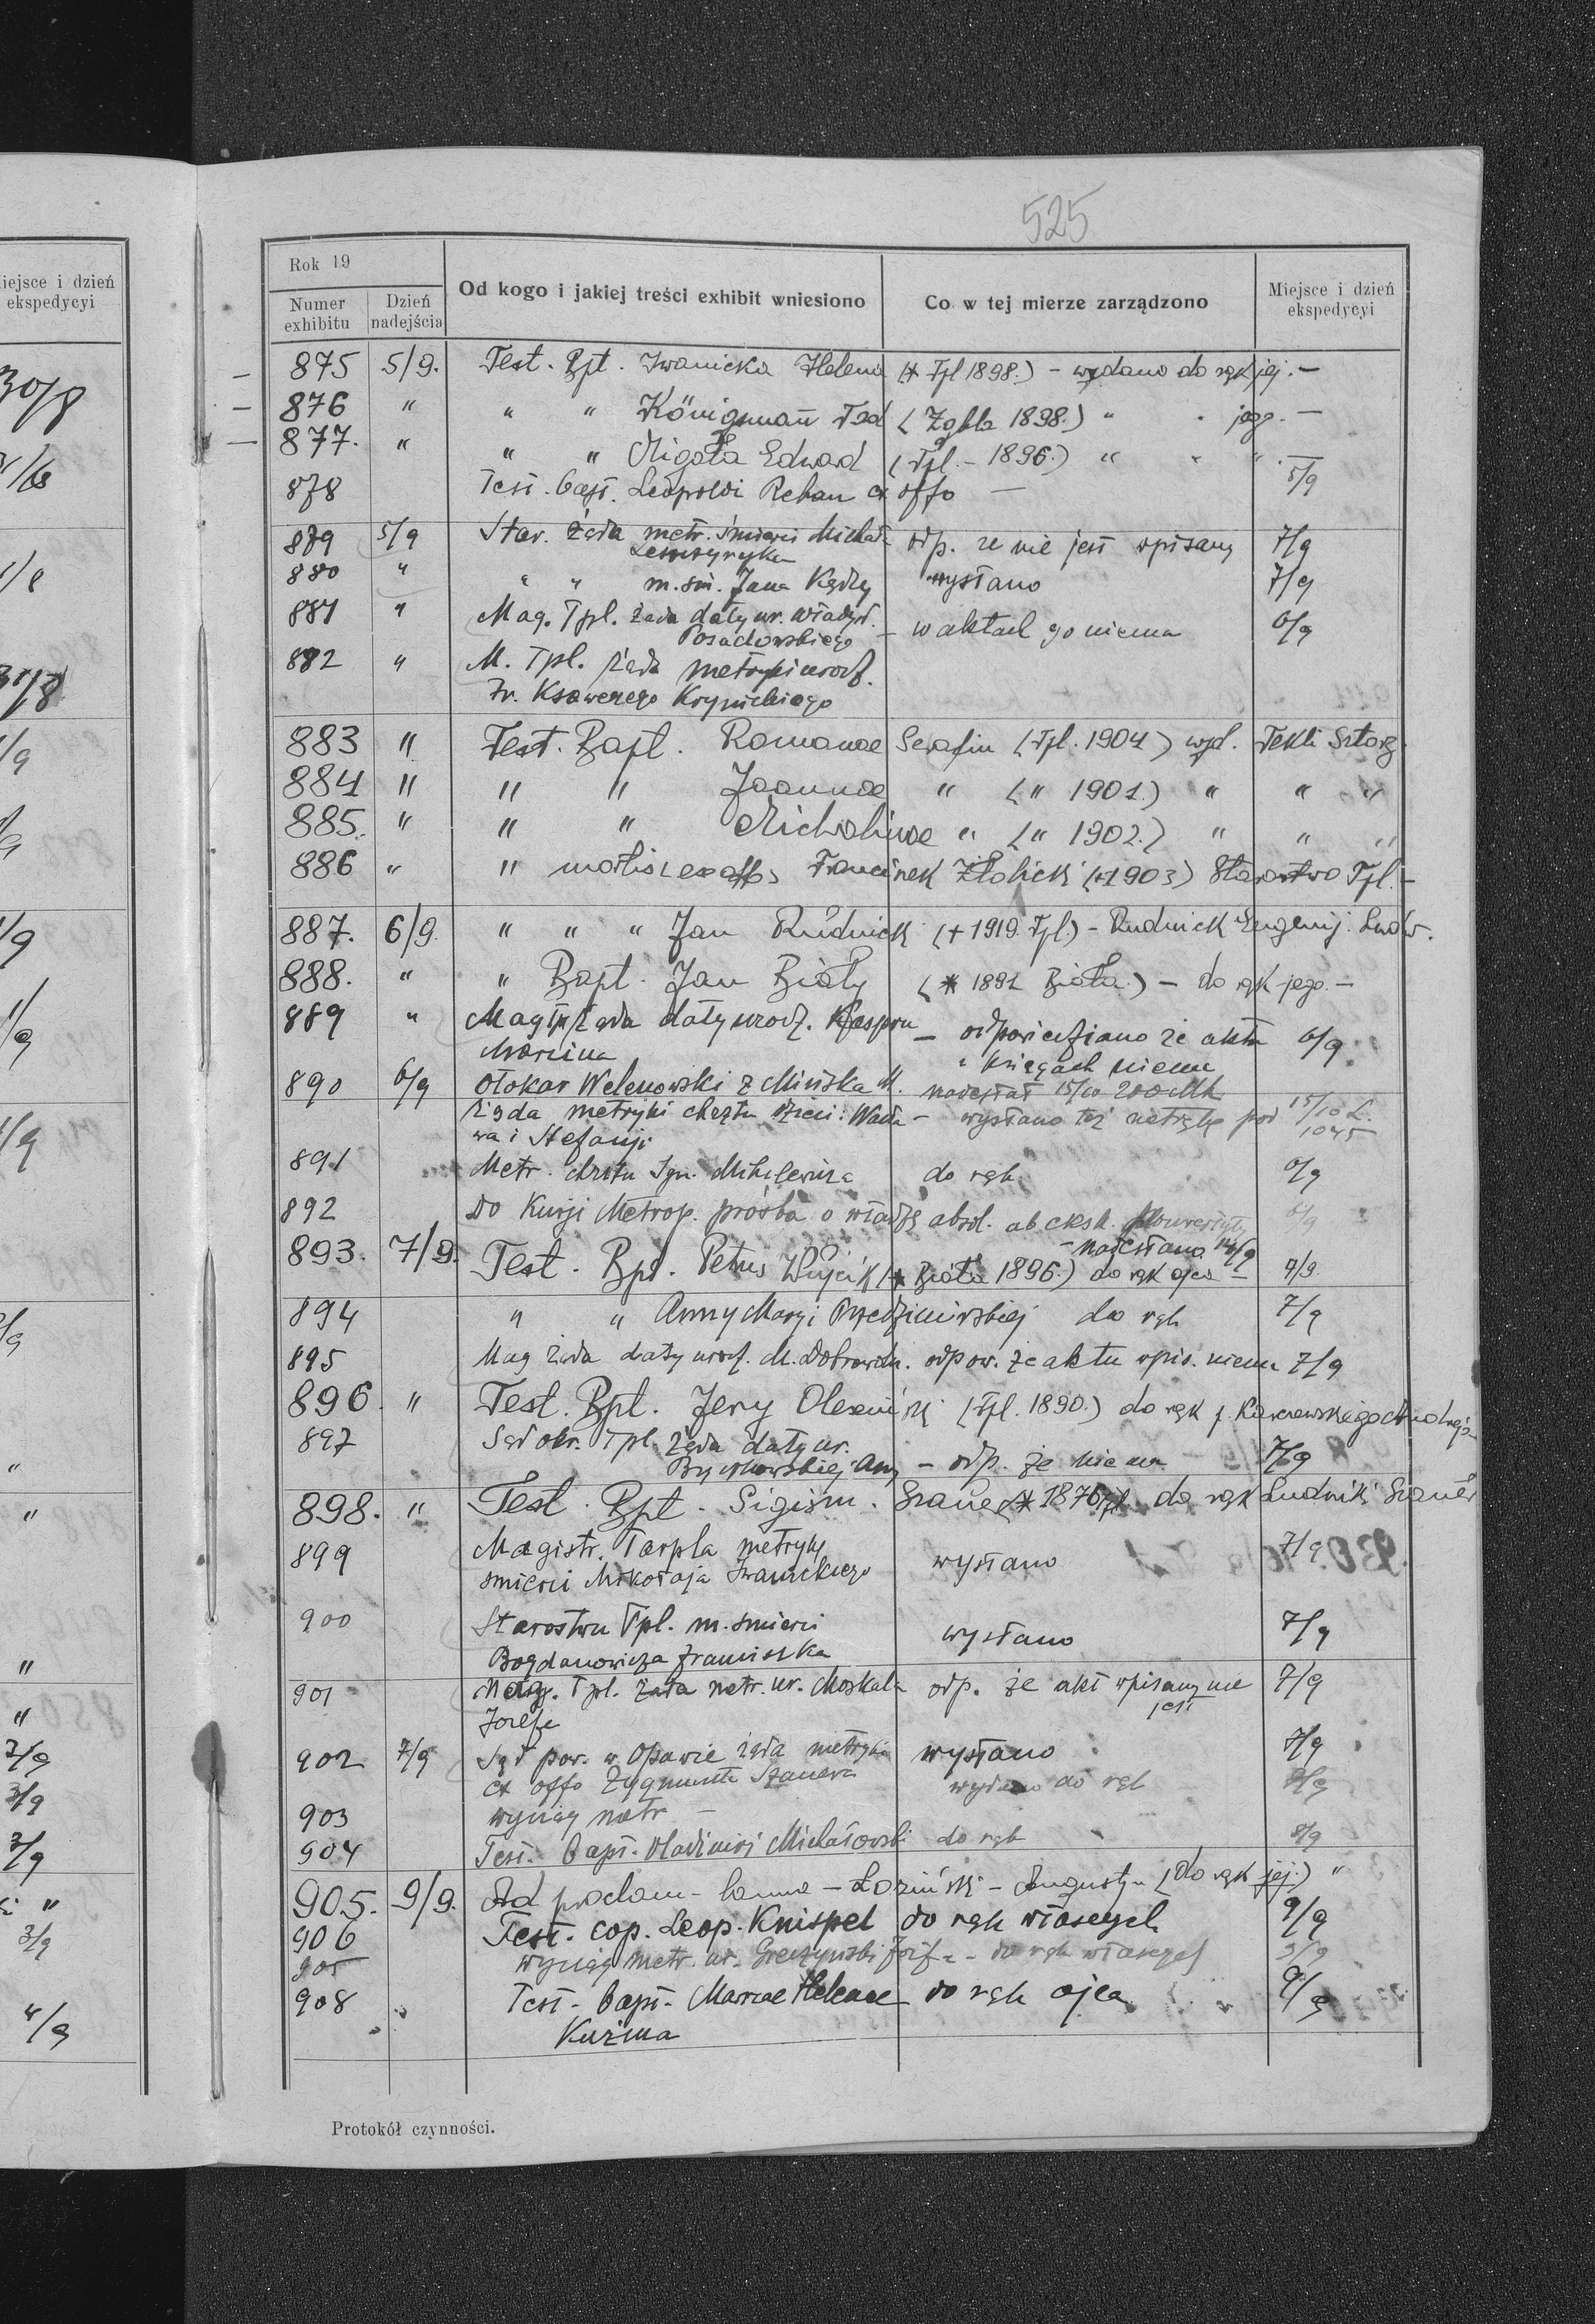 525
Rok 19
Numer exhibitu
Dzień nadejścia
Od kogo i jakiej treści exhibit wniesiono
Co w tej mierze zarządzono
Miejsce i dzień ekspedycyi
iejsce i dzień
ekspedycyi
30/8
875 5/9. Test. Bpt. Iwanicka Helena (* Tpl 1898.) - wydano do rąk jej. -
876 " " " Königsmann Tad (Zgbla 1898.) " " jego. -
877. " " " Migała Edward (Tpl. - 1896.) " " " . -
878 Test. bapt. Leopoldi Rehan ex offo — 5/9
879 5/9 Star. żąda metr. śmierci Michała odp. że nie jest wpisany 7/9
880 " " " m. śm. Jana Kądzy wysłano 7/9
881 " Mag. Tpl. żąda daty ur. Władysł. Posadowskiego - w aktach go niema 6/9
882 " M. Tpl. żąda metryki urodz.
Fr. Ksawerego Krynickiego
883 " Test. Bapt. Romanae Serafin (Tpl. 1904) wyd. Tekli
884 " " " Joannae " (" 1901.) " " "
885. " " " Michalinae " (" 1902.) " " "
886 " " mortis ex offo Franciszek Żłobicki (+1903) Starostwo Tpl. -
887. 6/9. " " " Jan Rudnicki (+ 1919. Tpl.) - Rudnicki Eugenj. Ludw.
888. " " Bapt. Jan Biały (* 1891 Biała.) - do rąk jego. -
889 " Mag Tpl żąda daty urodz. Kaspra - odpowiedziano że aktu 6/9
Marcina w księgach niema
890 6/9 Otokar Welenowski z Mińska M. nadesłał 15/10 200 Mk
żąda metryki chrztu dzieci: Wacła- wysłano tej metrykę pod 15/10 L.
wa i Stefanji 1045
891 Metr. chrztu Ign. Mihilewicza do rąk 6/9
892 Do Kurji Metrop. prośba o władzę absol. ab cksk. 6/9
- nadesłano 14/9
893. 7/9. Test. Bpt. Petrus Wójcik (* Biała 1896.) do rąk ojca - 7/9
894 " " Anny Maryi do rąk 7/9
895 Mag żąda daty urodz. M. odpow. że aktu wpis. niema 7/9
896. " Test. Bpt. Jerzy (Tpl. 1890.) do rąk p.
897 Sąd okr. Tpl. żąda daty ur.
Anny - odp. że niema 7/9
898. " Test. Bpt. Sigism. (* 1876 Tpl. do rąk Ludwiki
899 Magistr. Tarpla metrykę
śmierci Mikołaja Iwanickiego wysłano 7/9
900 Starostwu Tpl. m. śmierci
Bogdanowicza Franciszka wysłano 7/9
901 Mag. Tpl. żąda metr. ur. Moskala odp. że akt wpisany nie 7/9
Józefa jest
902 7/9 Sąd pow. w Opawie żąda metryki wysłano 7/9
ex offo Zygmunta Szanera wydano do rąk
903 wyciąg metr -
904 Test. bapt. Vladimiri Michałowski do rąk 8/9
905. 9/9. Ad proclam- - Łoziński - Augustyn (do rąk jej.) "
906 Test. cop. Leop. Knispel do rąk własnych 9/9
wyciąg metr. ur. Józefa - do rąk własnych 9/9
908 Test. bapt. Mariae Helenae do rąk ojca 9/9
Kuźma
Protokół czynności.